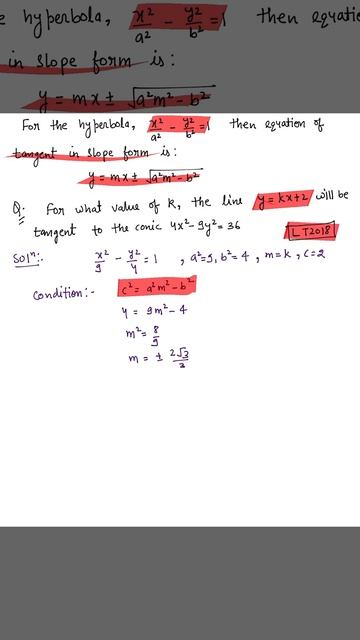 e hyperbola, x²/a² - y²/b² = 1 then equatio
in slope form is:
y = mx ± √a²m² - b²
For the hyperbola, x²/a² - y²/b² = 1 then equation of
tangent in slope form is:
y = mx ± √a²m² - b²
Q:- For what value of k, the line y = kx+2 will be
tangent to the conic 4x² - 9y² = 36 LT2018
Solⁿ:- x²/9 - y²/4 = 1 , a²=9, b²=4 , m=k , c=2
Condition:- c² = a²m² - b²
4 = 9m² - 4
m² = 8/9
m = ± 2√2/3